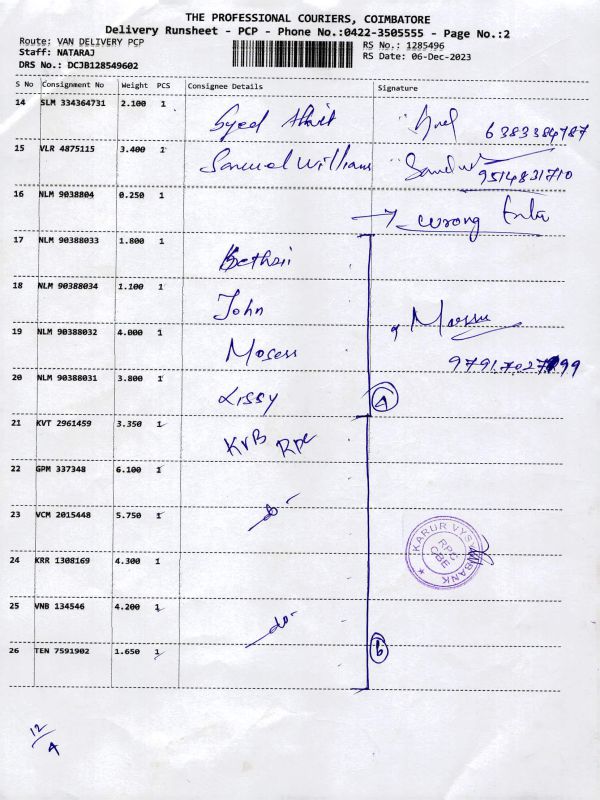 THE PROFESSIONAL COURIERS, COIMBATORE
Delivery Runsheet - PCP - Phone No.:0422-3505555 - Page No.:2
Route: VAN DELIVERY PCP
Staff: NATARAJ
DRS No.: DCJB128549602
RS No.: 1285496
RS Date: 06-Dec-2023
S No Consignment No Weight PCS Consignee Details Signature
14 SLM 334364731 2.100 1 Syed 6383384787
15 VLR 4875115 3.400 1 Samuel Williams 9514831710
16 NLM 9038804 0.250 1 → wrong
17 NLM 90388033 1.800 1
18 NLM 90388034 1.100 1 John
19 NLM 90388032 4.000 1 Moses
9791702799
20 NLM 90388031 3.800 1 Lissy A
21 KVT 2961459 3.350 1 KVB RPC
22 GPM 337348 6.100 1
23 VCM 2015448 5.750 1 -do-
KARUR VYSYA BANK
RPC
CBE
24 KRR 1308169 4.300 1
25 VNB 134546 4.200 1 -do-
26 TEN 7591902 1.650 1 B
12/A